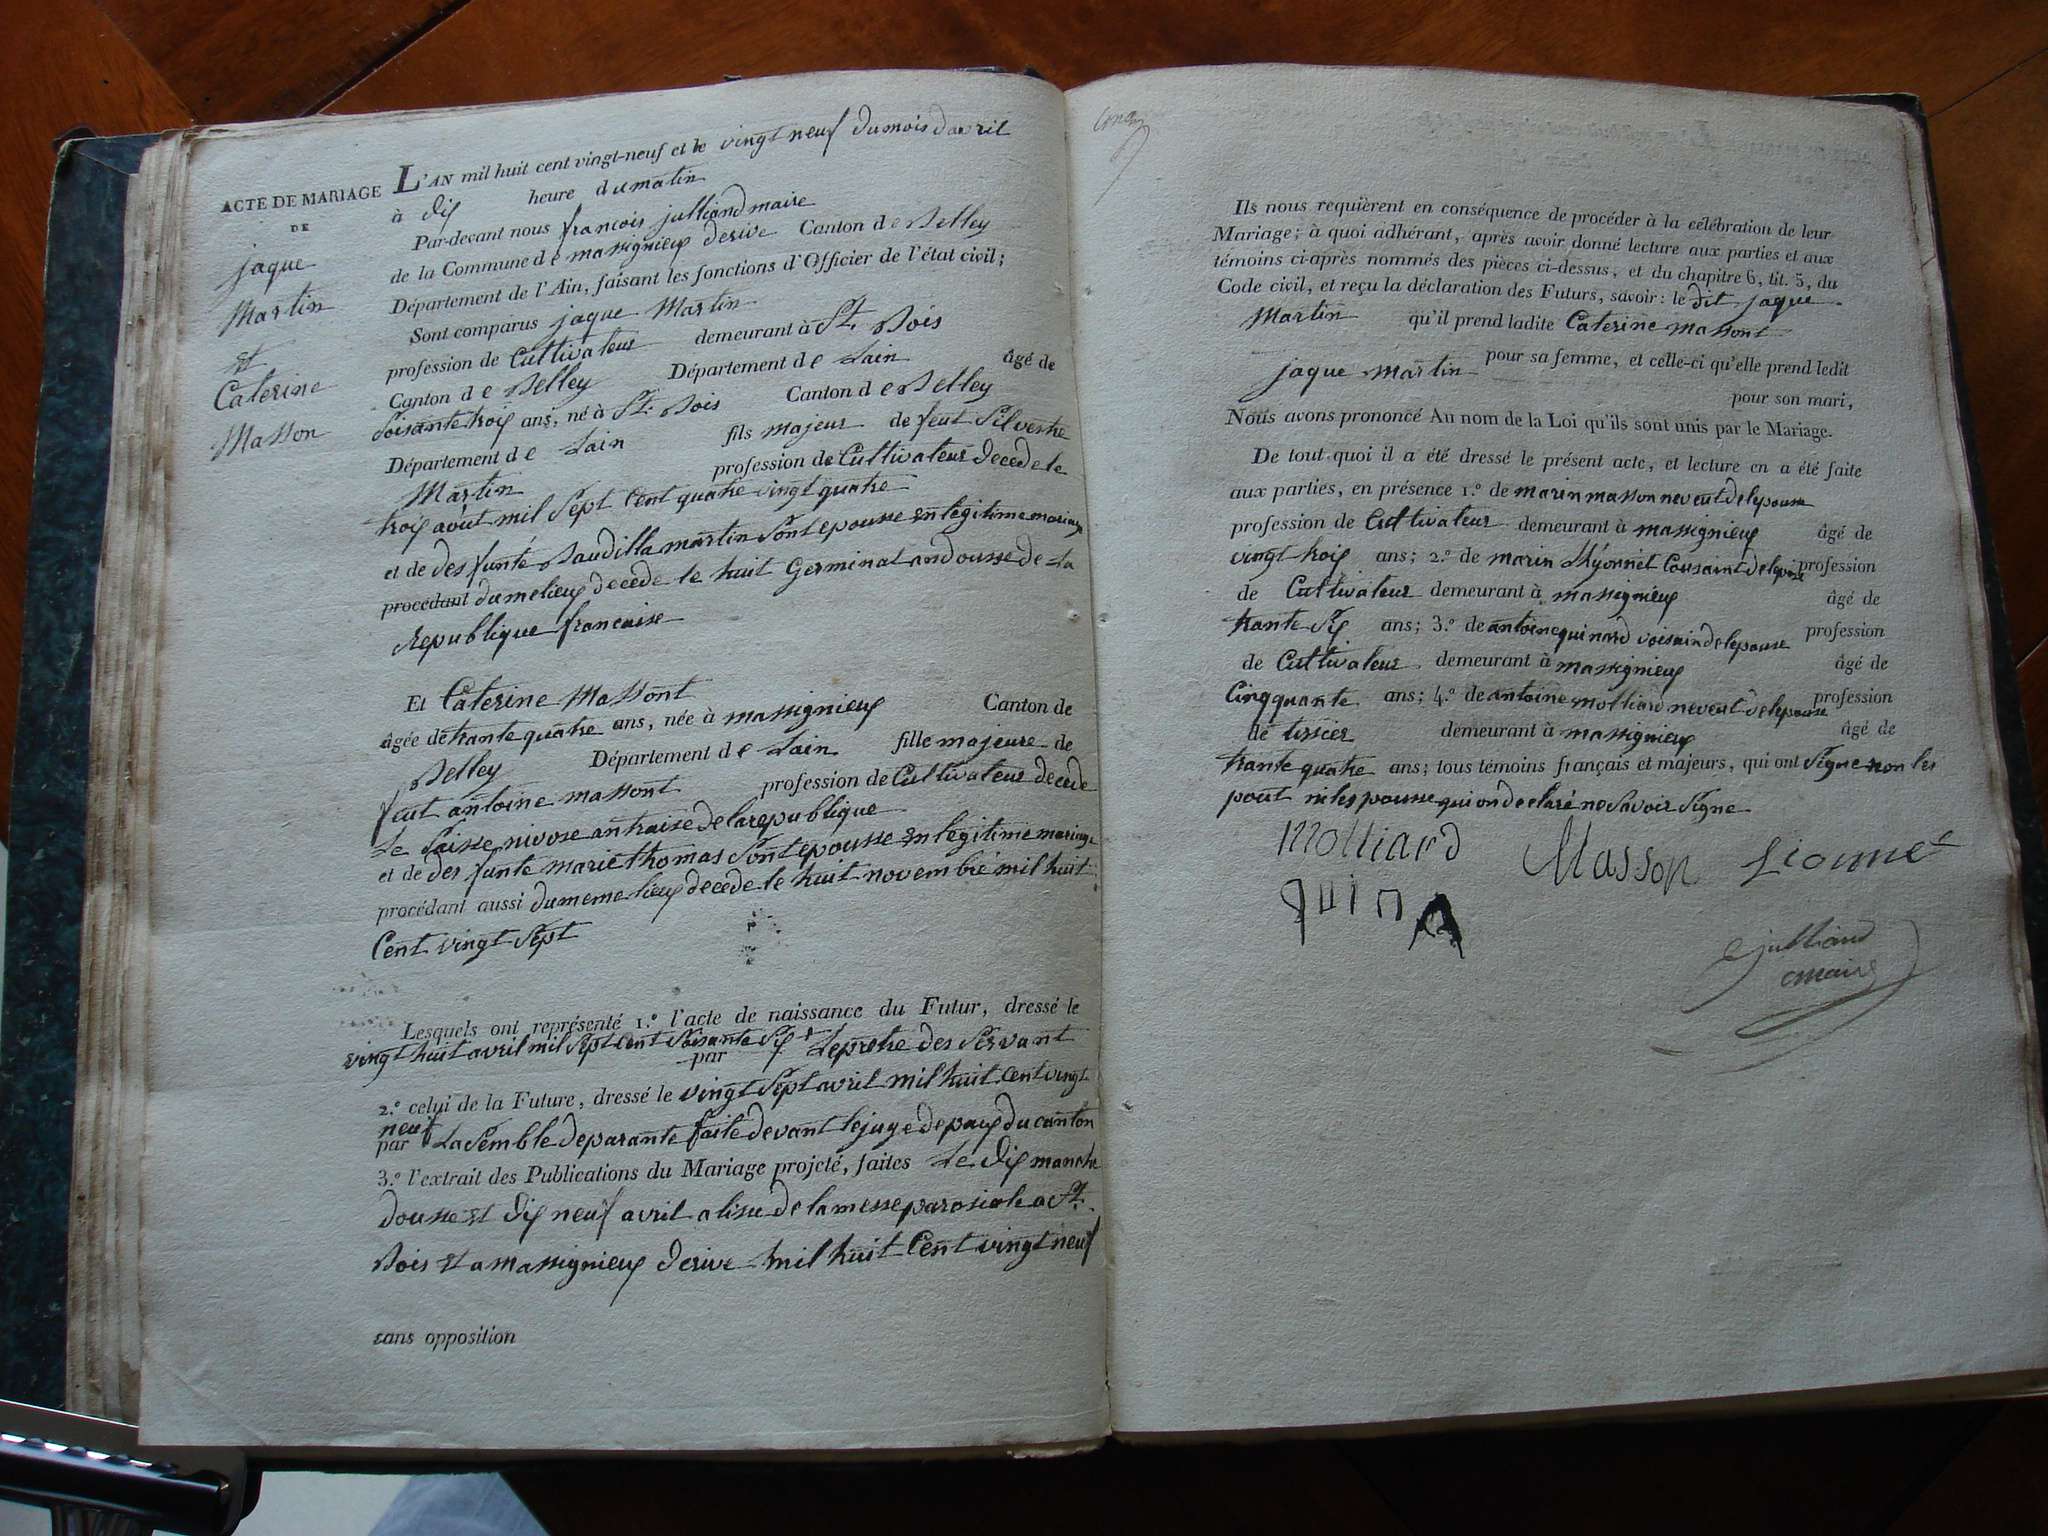 ACTE DE MARIAGE
DE
jaque
Martin
et
Caterine
Masson
L'AN mil huit cent vingt-neuf et le vingt neuf du mois d'avril
à dix heure du matin
Par-devant nous francois julliand maire
de la Commune de massignieux derive Canton de Belley
Département de l'Ain, faisant les fonctions d'Officier de l'état civil;
Sont comparus jaque Martin
profession de Cultivateur demeurant à St. Bois
Canton de Belley Département de Lain âgé de
soisante trois ans, né à St. Bois Canton de Belley
Département de Lain fils majeur de feut Silvestre
Martin profession de Cultivateur decede le
trois août mil sept cent quatre vingt quatre
et de des funte Baudilla martin sont epousse en legitime mariage
procédant du me lieux decede le huit Germinal an dousse de La
republique francaise
Et Caterine Massont
âgée de trante quatre ans, née à massignieux Canton de
Belley Département de Lain fille majeure de
feut antoine massont profession de Cultivateur decede
Le saisse nivose an traise de la republique
et de des funte marie thomas sont epousse en legitime mariage
procédant aussi du meme lieux decede le huit novembre mil huit
Cent vingt sept
Lesquels ont représenté 1.º l'acte de naissance du Futur, dressé le
vingt huit avril mil sept cent soisante six
par Le pretre des servant
2.º celui de la Future, dressé le vingt sept avril mil huit cent vingt
neuf
par La semble de parante faite devant le juge de paix du canton
3.º l'extrait des Publications du Mariage projeté, faites Le dix manche
dousse et dix neuf avril a lisu de la messe parosiale a St.
Bois et a massignieux derive mil huit Cent vingt neuf
sans opposition
Ils nous requièrent en conséquence de procéder à la célébration de leur
Mariage; à quoi adhérant, après avoir donné lecture aux parties et aux
témoins ci-après nommés des pièces ci-dessus, et du chapitre 6, tit. 5, du
Code civil, et reçu la déclaration des Futurs, savoir: le dit jaque
Martin qu'il prend ladite Caterine massont
pour sa femme, et celle-ci qu'elle prend ledit
jaque martin pour son mari,
Nous avons prononcé Au nom de la Loi qu'ils sont unis par le Mariage.
De tout quoi il a été dressé le présent acte, et lecture en a été faite
aux parties, en présence 1.º de marin masson neveut de lepouse
profession de Cultivateur demeurant à massignieux âgé de
vingt trois ans; 2.º de marin Lhyonnet Cousaint de lepouse profession
de Cultivateur demeurant à massignieux âgé de
trante six ans; 3.º de antoine quinard voisain de lepouse profession
de Cultivateur demeurant à massignieux âgé de
Cinqquante ans; 4.º de antoine molliard neveut de lepouse profession
de tissier demeurant à massignieux âgé de
trante quatre ans; tous témoins français et majeurs, qui ont signe non les
pout ni lespousse qui on declaré ne savoir signe
Molliard Masson Lionne
quina
julliand
maire